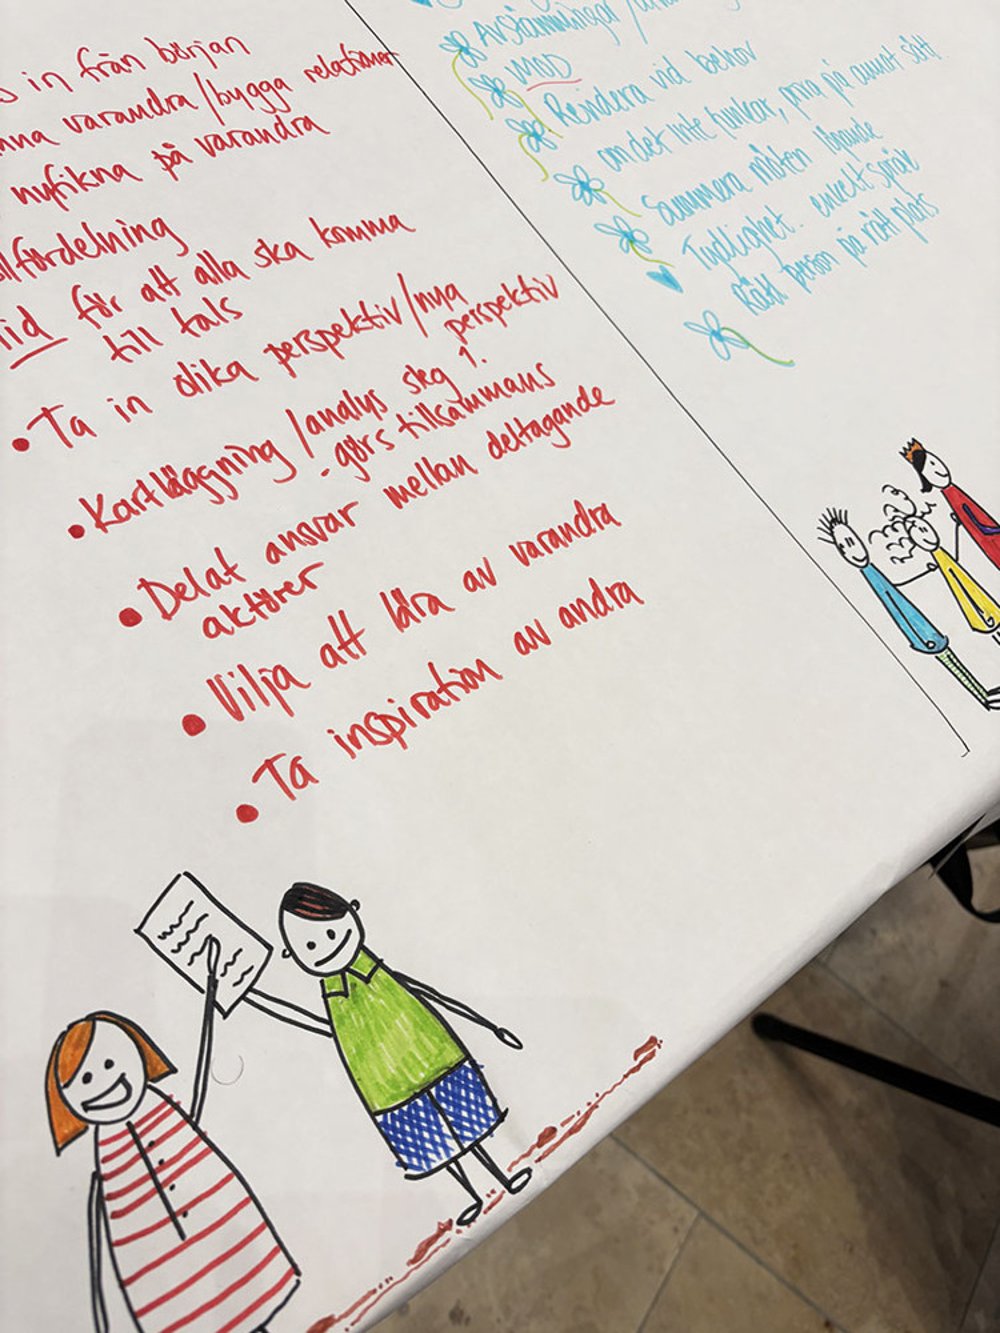 in från början
varandra/bygga relationer
nyfikna på varandra
för att alla ska komma
till tals
• Ta in olika perspektiv/nya
perspektiv
• Kartläggning/analys steg 1.
- görs tillsammans
• Delat ansvar mellan deltagande
aktörer
• Vilja att lära av varandra
• Ta inspiration av andra
Avstämningar/
MOD
Revidera vid behov
om det inte funkar, prova på annat sätt
Summera möten löpande
Tydlighet. enkelt språk
Rätt person på rätt plats